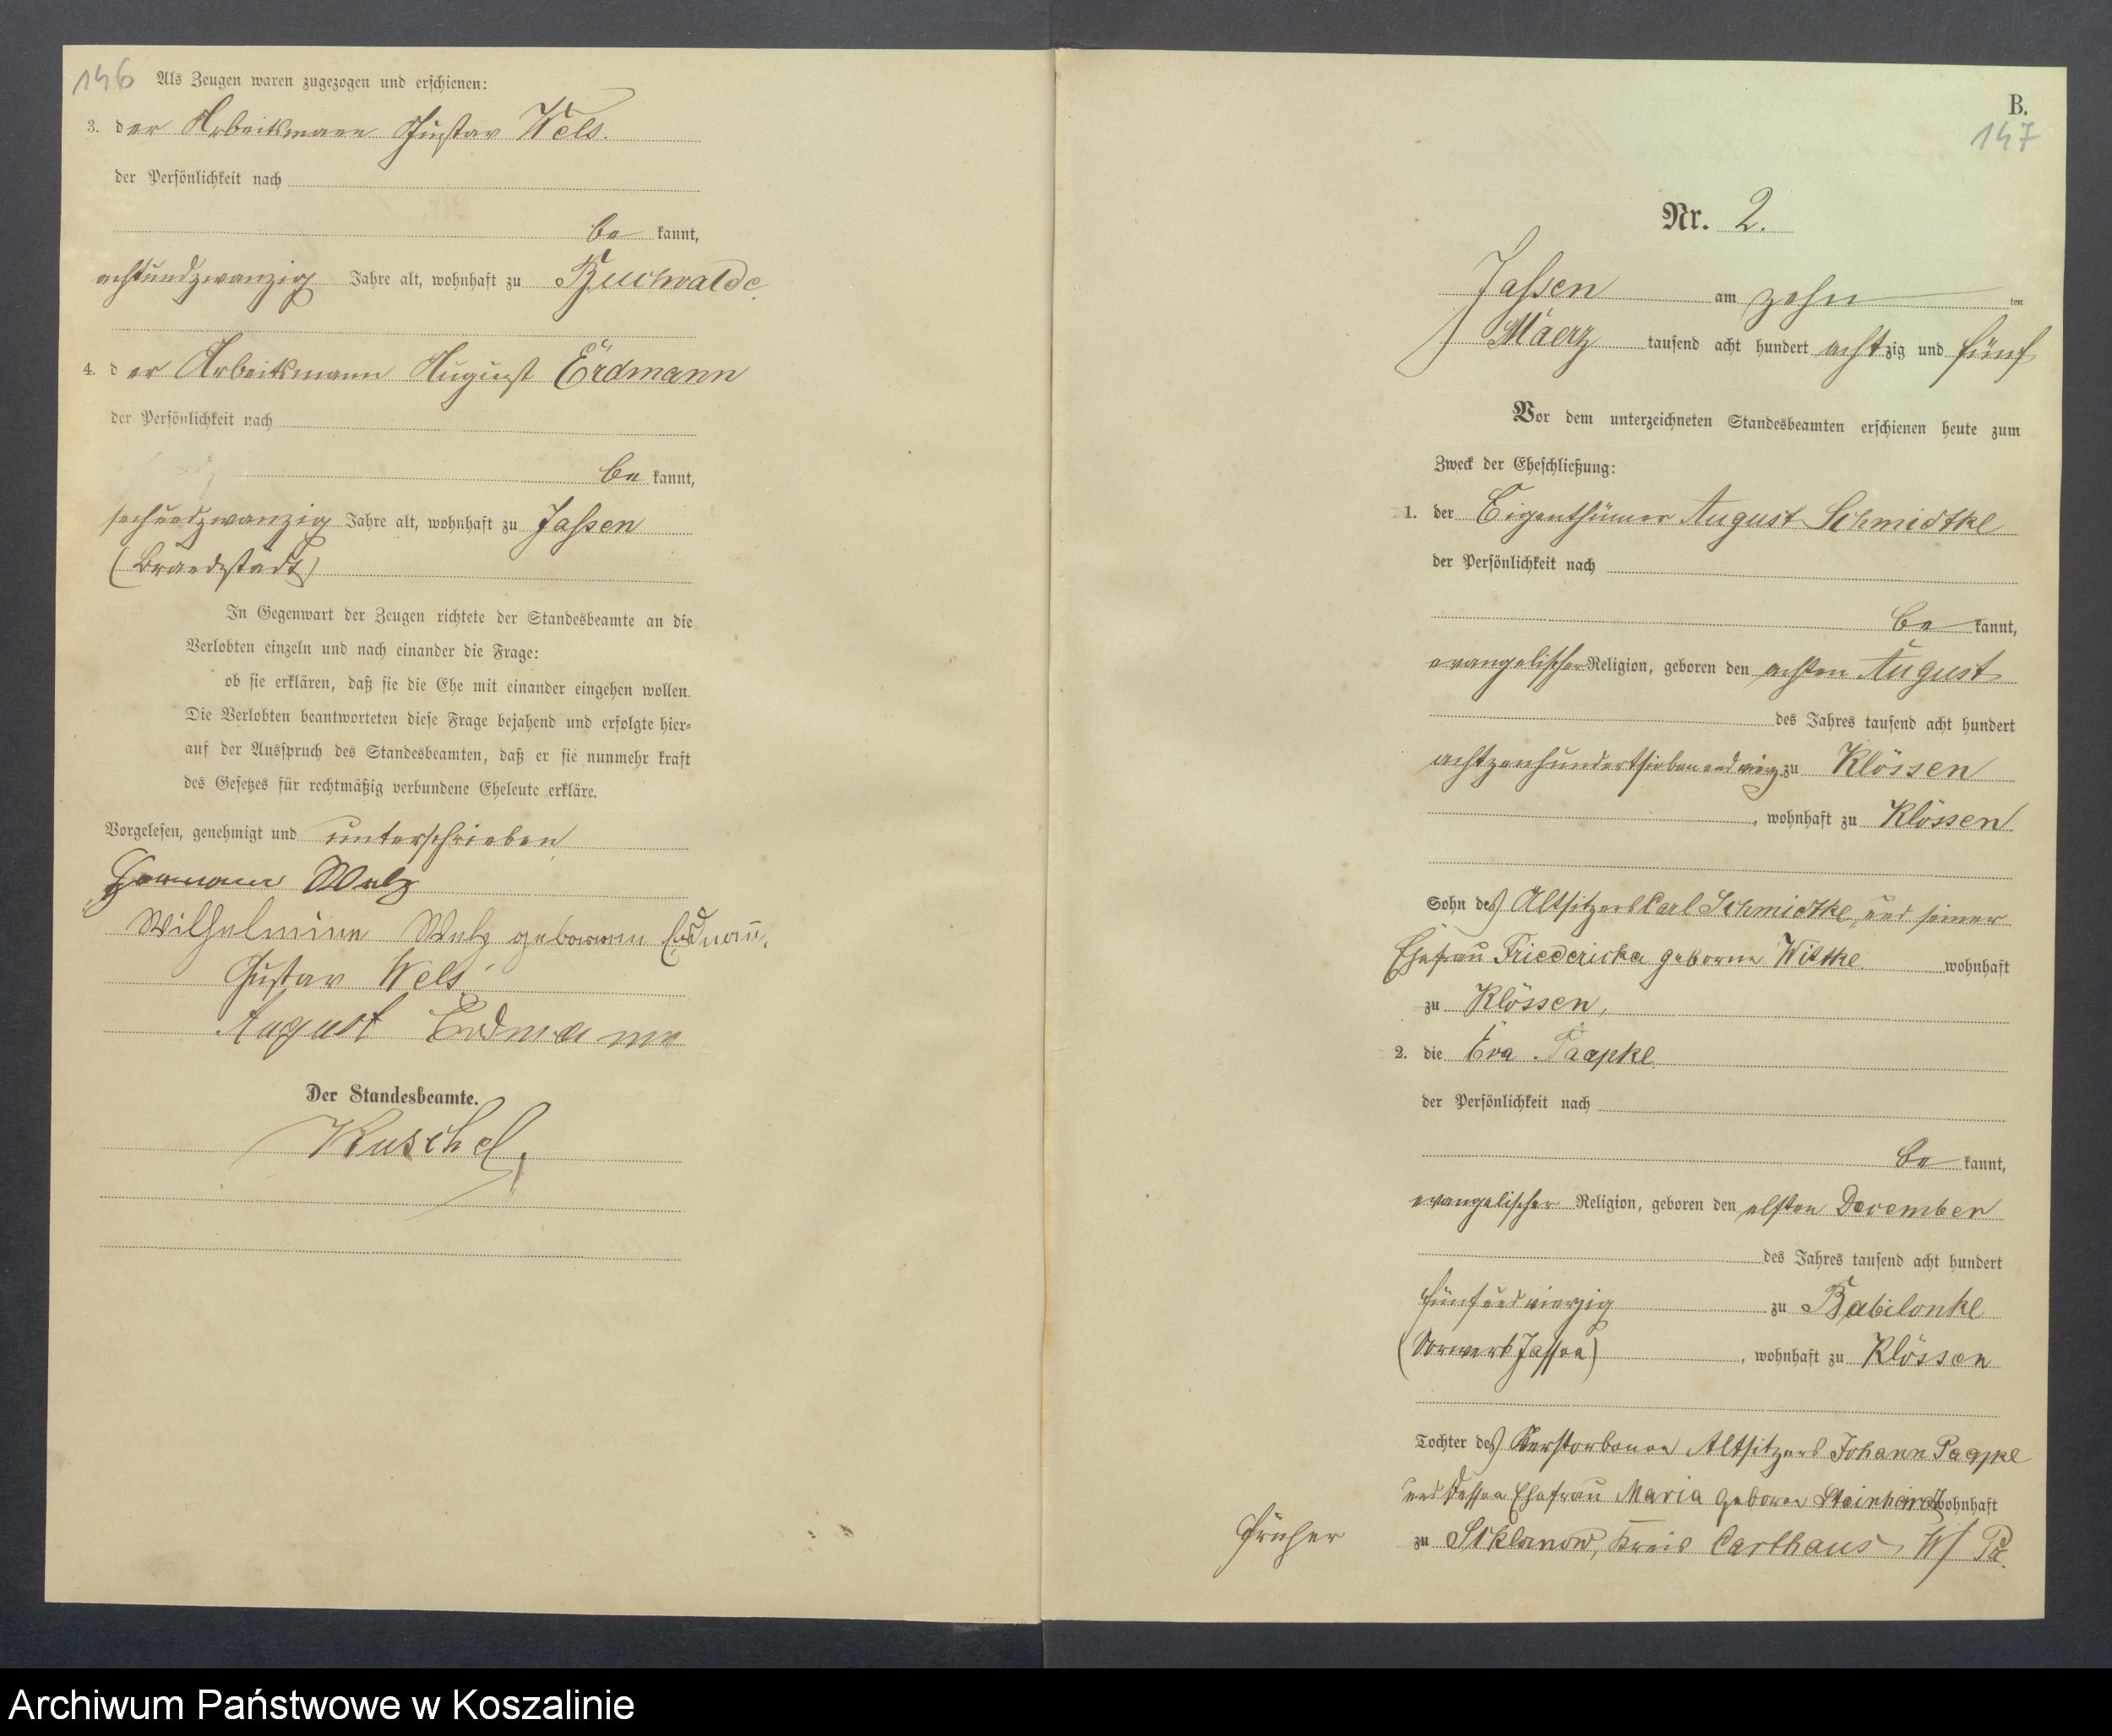 146
Als Zeugen waren zugezogen und erschienen:
3. der Arbeitsmann Gustav Wels.
der Persönlichkeit nach
be kannt,
achtundzwanzig Jahre alt, wohnhaft zu Buchwalde
4. der Arbeitsmann August Erdmann
der Persönlichkeit nach
be kannt,
sechundzwanzig Jahre alt, wohnhaft zu Jassen
(Brandstädt)
In Gegenwart der Zeugen richtete der Standesbeamte an die
Verlobten einzeln und nach einander die Frage:
ob sie erklären, daß sie die Ehe mit einander eingehen wollen.
Die Verlobten beantworteten diese Frage bejahend und erfolgte hier-
auf der Ausspruch des Standesbeamten, daß er sie nunmehr kraft
des Gesetzes für rechtmäßig verbundene Eheleute erkläre.
Vorgelesen, genehmigt und unterschrieben
Hermann Welz
Wilhelmine Welz geborene
Gustav Wels
August Erdmann
Der Standesbeamte.
Kuschel.
B.
147
Nr. 2.
Jassen am zehn ten
Maerz tausend acht hundert achtzig und fünf
Vor dem unterzeichneten Standesbeamten erschienen heute zum
Zweck der Eheschließung:
1. der Eigenthümer August Schmidtke
der Persönlichkeit nach
be kannt,
evangelischer Religion, geboren den achten August
des Jahres tausend acht hundert
achtzenhundertsiebenundvierzig zu Klössen
, wohnhaft zu Klössen
Sohn des Altsitzers Carl Schmidtke, und seiner
Ehefrau Friedericka geborne Wittke wohnhaft
zu Klössen,
2. die Eva Paapke
der Persönlichkeit nach
be kannt,
evangelischer Religion, geboren den elften December
des Jahres tausend acht hundert
fünfundvierzig zu Babilonke
(Vorwerk Jassen), wohnhaft zu Klössen
Tochter des Verstorbenen Altsitzers Johann Paapke
und dessen Ehefrau Maria geborne wohnhaft
früher zu Kreis Carthaus W/Pr.
Archiwum Państwowe w Koszalinie